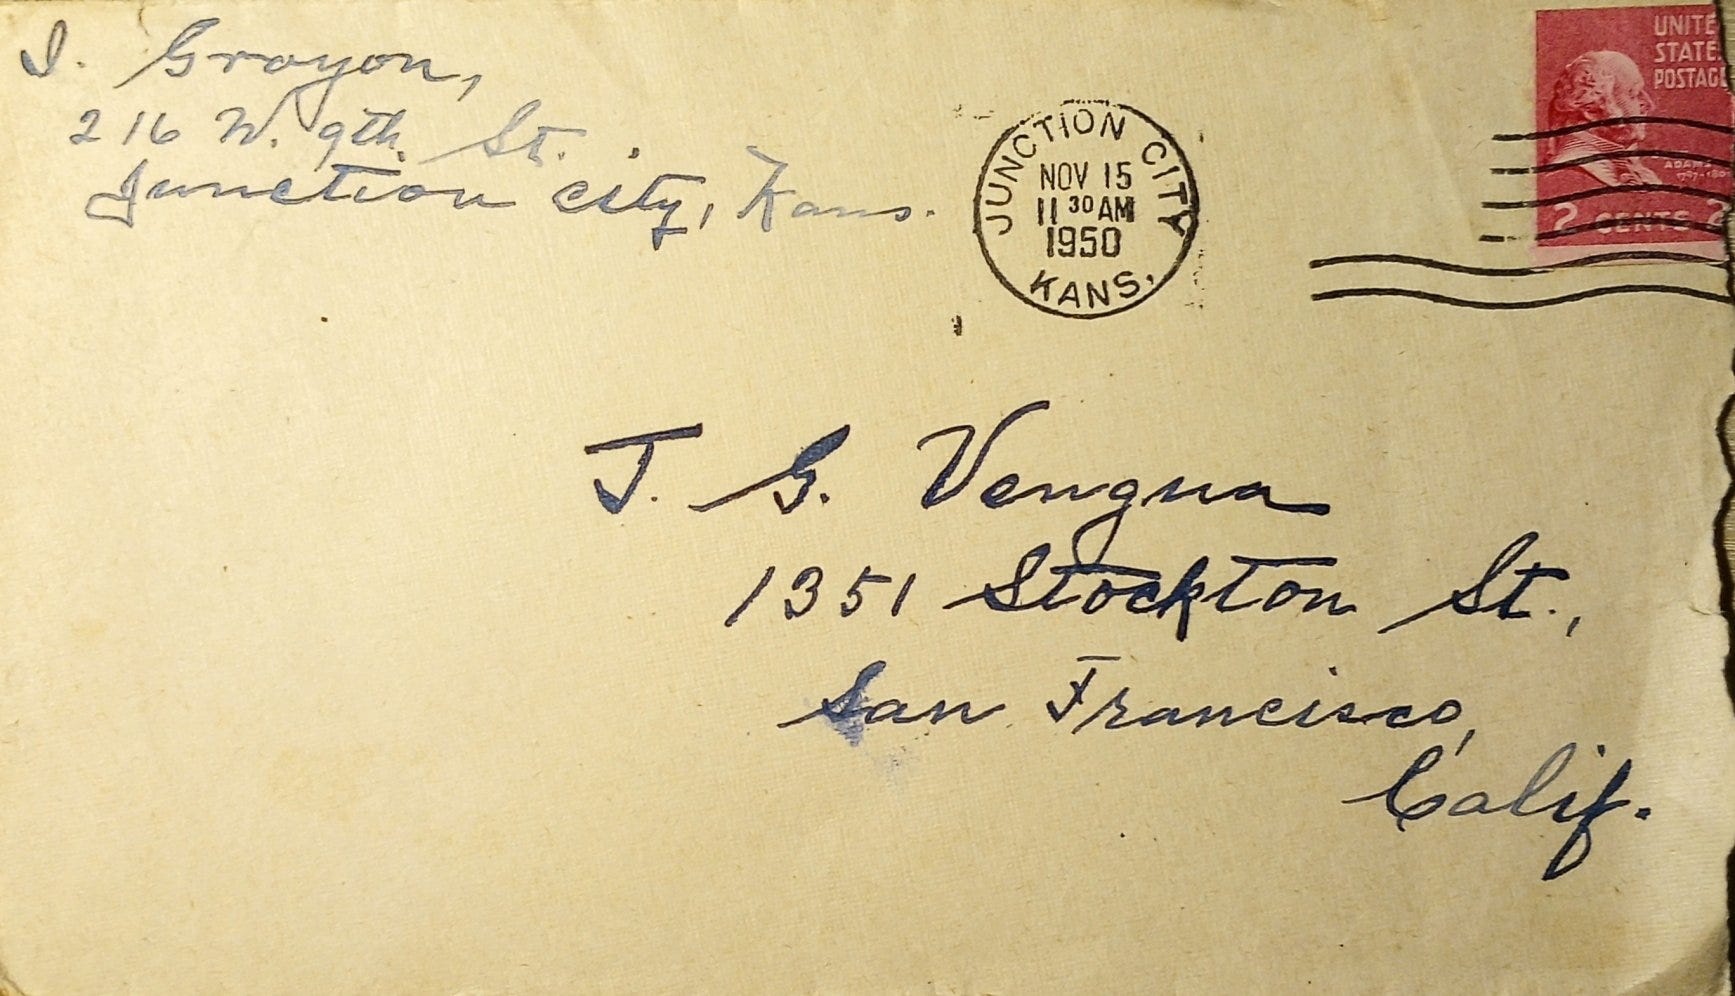 I. Grayon,
216 W. 9th. St.
Junction City, Kans.
JUNCTION CITY
NOV 15
11 30 AM
1950
KANS.
UNITE
STATE
POSTAG
ADAM
2 CENTS 2
J. G. Vengua
1351 Stockton St.,
San Francisco,
Calif.